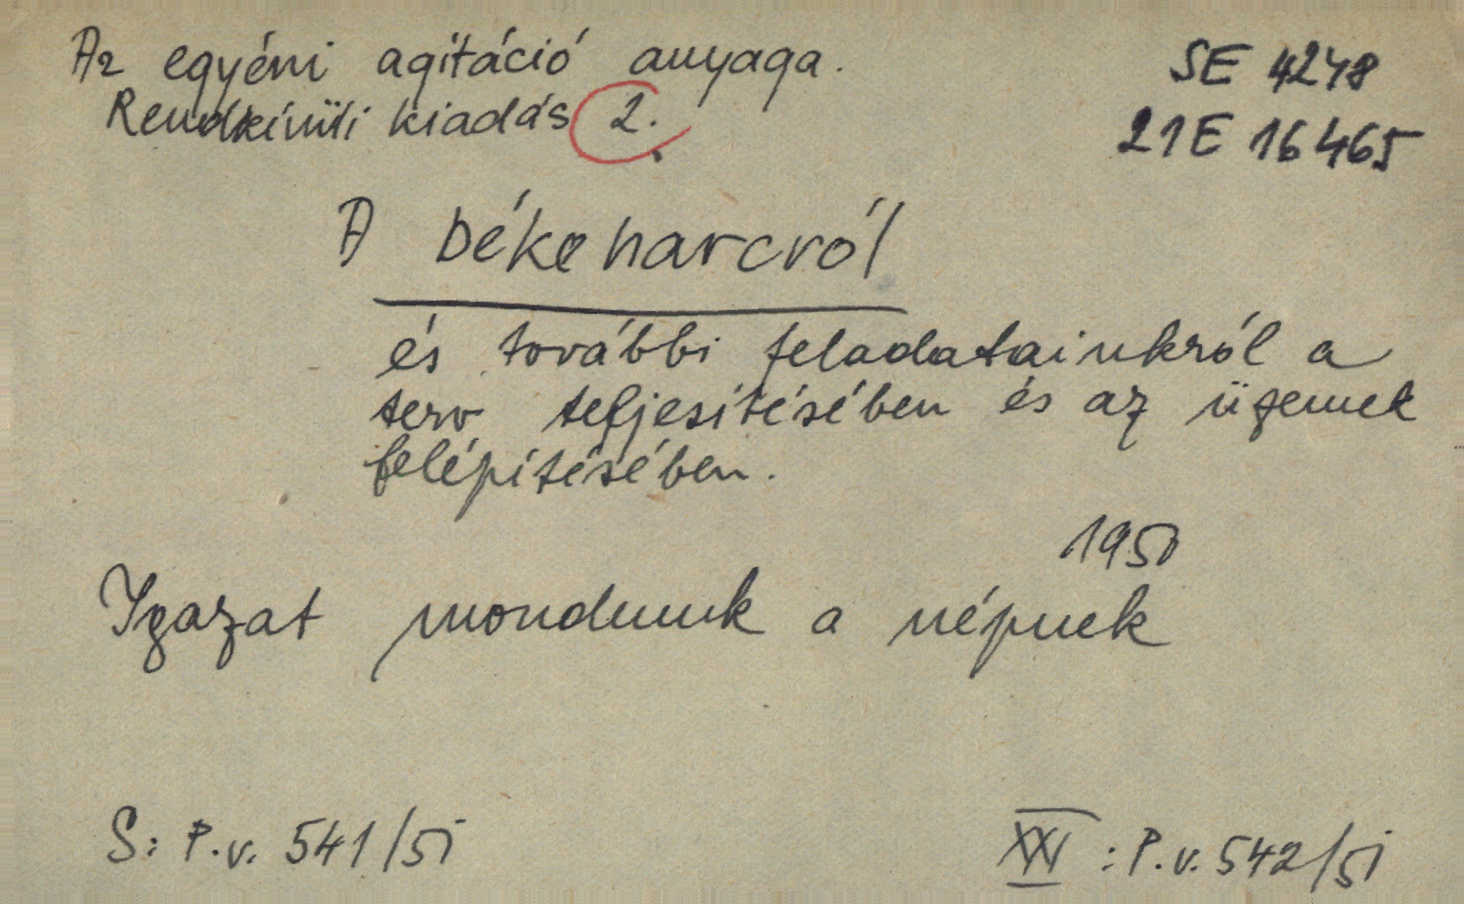 Az egyéni agitáció anyaga.
SE 4248
Rendkívüli kiadás 2.
21E 16465
A békeharcról
és további feladatainkról a
terv teljesítésében és az üzemek
felépítésében.
1950
Igazat mondunk a népnek
S: P.v. 541/51
XXI : P.v. 542/51